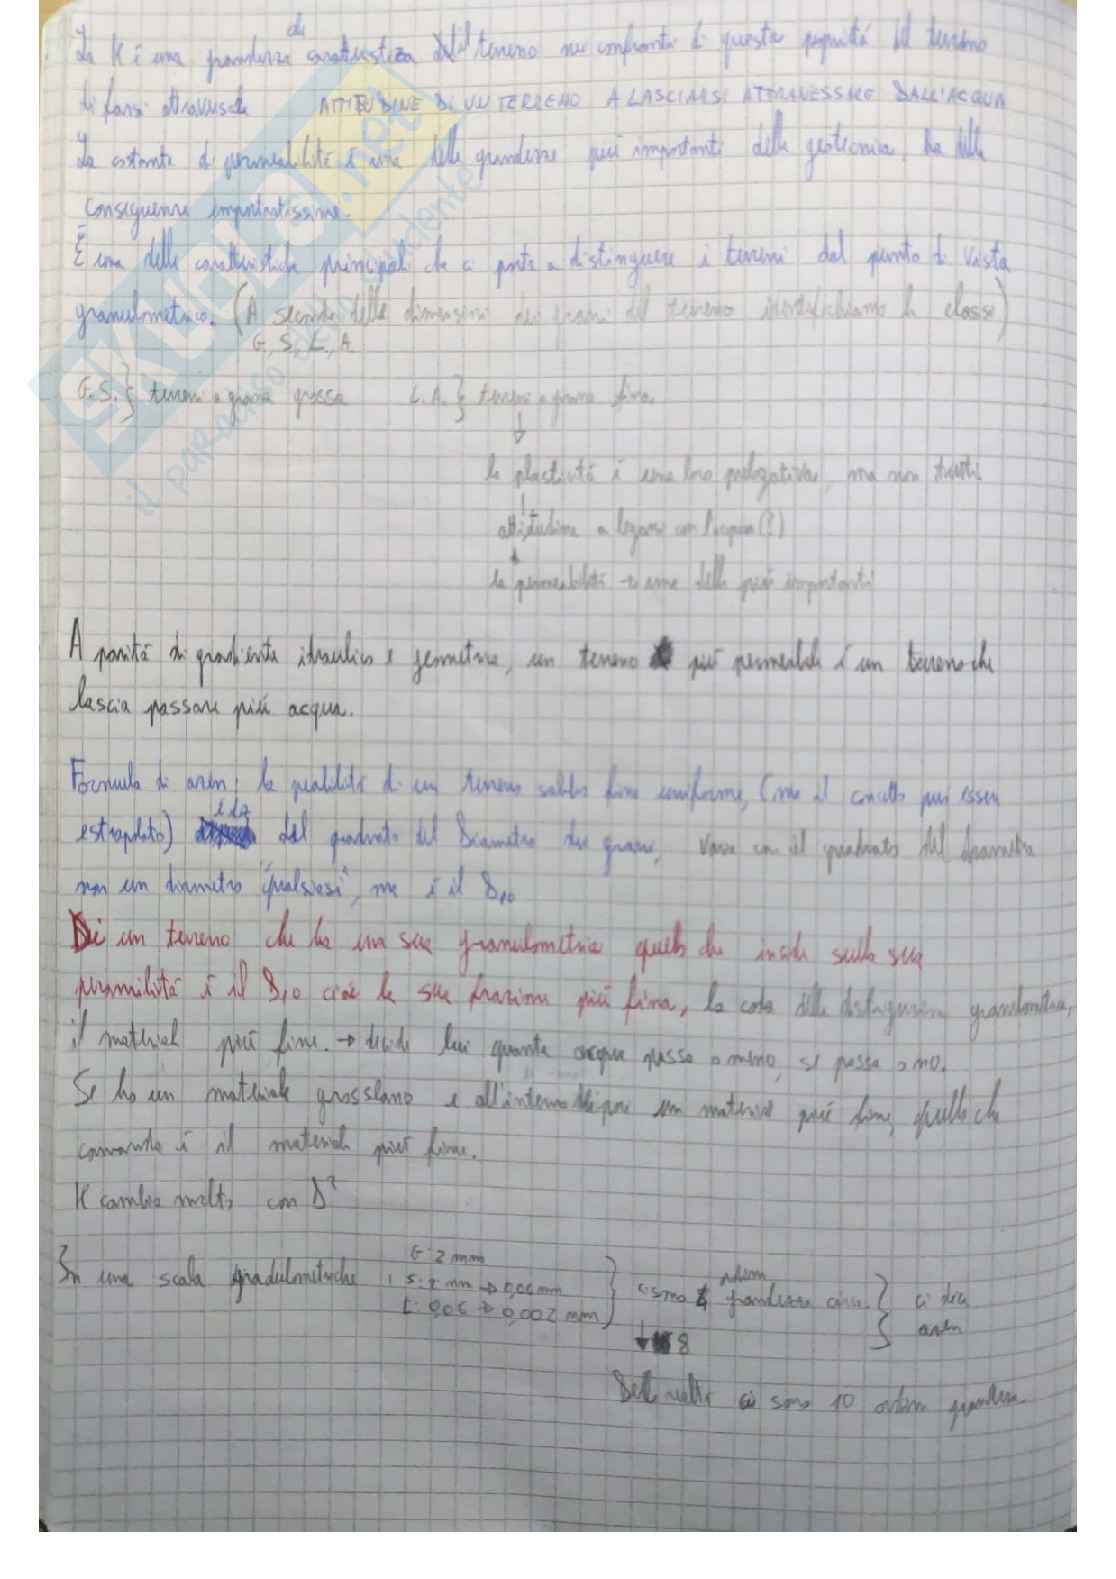 La K è una grandezza caratteristica del terreno nei confronti di questa proprietà del terreno
di
di farsi attraversare ATTITUDINE DI UN TERRENO A LASCIARSI ATTRAVERSARE DALL'ACQUA
La costante di permeabilità è una delle grandezze più importanti della geotecnica, ha delle
conseguenze importantissime.
È una delle caratteristiche principali che ci porta a distinguere i terreni dal punto di vista
granulometrico. (A seconda delle dimensioni dei grani del terreno individuiamo la classe)
G., S., L., A.
G.S.} terreni a grana grossa L.A.} terreni a grana fina.
la plasticità è una loro prerogativa, ma non tutti
attitudine a legarsi con l'acqua (?)
la permeabilità è una delle più importanti
A parità di gradiente idraulico e geometria, un terreno più permeabile è un terreno che
lascia passare più acqua.
Formula di : la di un terreno sabbia fine uniforme, (ma il concetto può essere
estrapolato) del quadrato del Diametro dei grani, varia con il quadrato del diametro
non un diametro "qualsiasi", ma è il D10
Di un terreno che ha una sua granulometria quello che incide sulla sua
permeabilità è il D10 cioè la sua frazione più fina, la coda della distribuzione granulometrica,
il material più fine. → decide lui quanta acqua passa o meno, se passa o no.
Se ho un materiale grossolano e all'interno un material più fine, quello che
comanda è il material più fine.
K cambia molto con D²
In una scala
G: 2 mm
S: 2 mm → 0,06 mm
L: 0,06 → 0,002 mm
8
Delle volte ci sono 10 ordini grandezza
SKUOLA.net
il paradiso dello studente